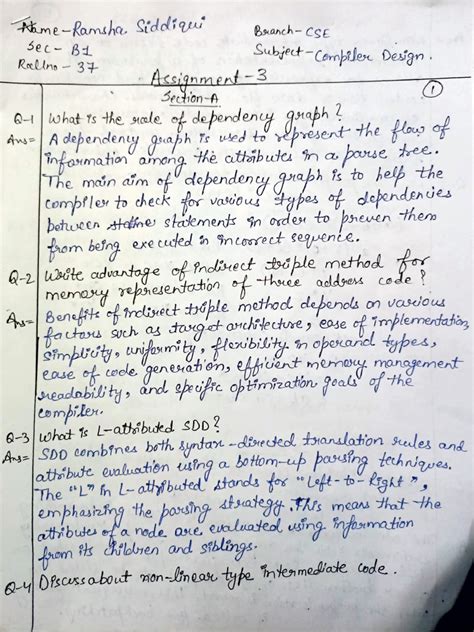 Name - Ramsha Siddiqui
Branch - CSE
Sec - B1
Subject - Compiler Design.
Rollno - 37
Assignment - 3
Section-A
1
Q-1 What is the role of dependency graph?
Ans= A dependency graph is used to represent the flow of
information among the attributes in a parse tree.
The main aim of dependency graph is to help the
compiler to check for various types of dependencies
between statements in order to preven them
from being executed in incorrect sequence.
Q-2 Write advantage of indirect triple method for
memory representation of three address code?
Ans= Benefits of indirect triple method depends on various
factors such as target architecture, ease of implementation,
simplicity, uniformity, flexibility in operand types,
ease of code generation, efficient memory management
readability, and specific optimization goals of the
compiler.
Q-3 What is L-attributed SDD?
Ans= SDD combines both syntax-directed translation rules and
attribute evaluation using a bottom-up parsing techniques.
The "L" in L-attributed stands for "Left-to-Right",
emphasizing the parsing strategy. This means that the
attributes of a node are evaluated using information
from its children and siblings.
Q-4 Discuss about non-linear type intermediate code.